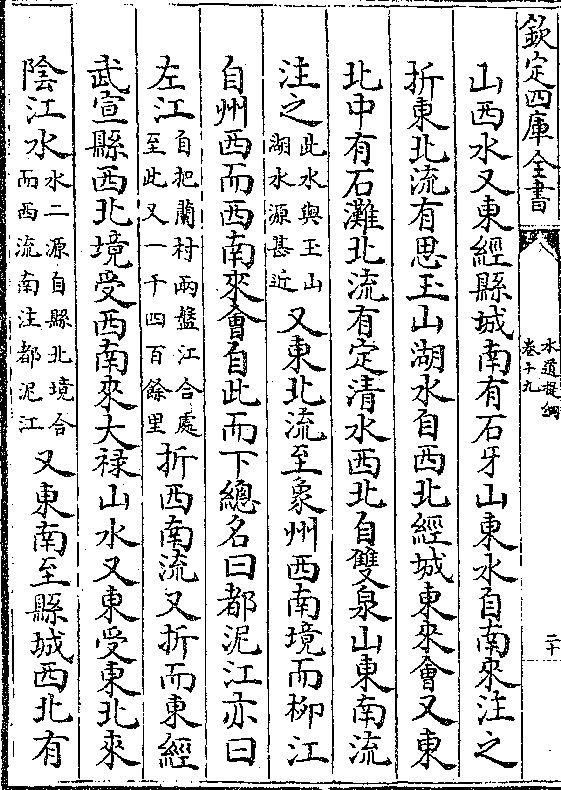 欽定四庫全書
水道提綱
卷十九
二十
山西水又東經縣城南有石牙山東水自南來注之
折東北流有思玉山湖水自西北經城東來會又東
北中有石灘北流有定清水西北自雙泉山東南流
注之此水與玉山湖水源甚近又東北流至象州西南境而柳江
自州西而西南來會自此而下總名曰都泥江亦曰
左江自把蘭村兩盤江合處至此又一千四百餘里折西南流又折而東經
武宣縣西北境受西南來大祿山水又東受東北來
陰江水水二源自縣北境合而西流南注都泥江又東南至縣城西北有